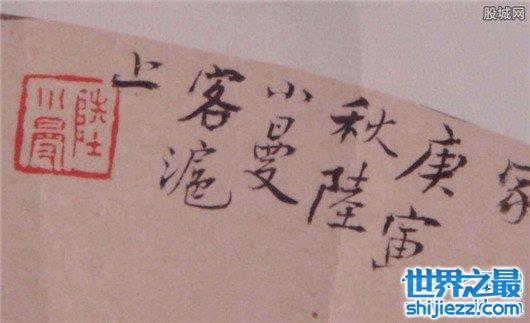 庚寅
秋陸
小曼
客滬
上
小曼
股城网
世界之最
shijiezz.com